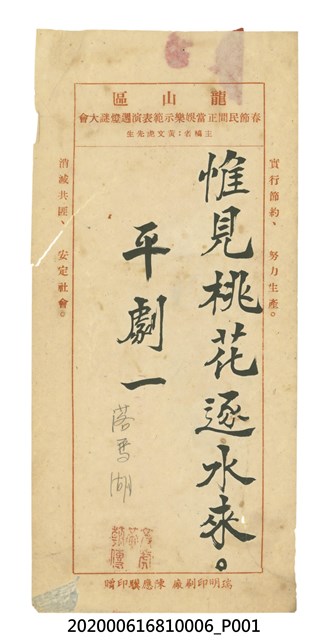 龍山區
春節民間正當娛樂示範表演週燈謎大會
主編者：黃文虎先生
實行節約、努力生產。
惟見桃花逐水來。
平劇一
落馬湖
消滅共匪、安定社會。
瑞明印刷廠 陳應騏印贈
202000616810006_P001